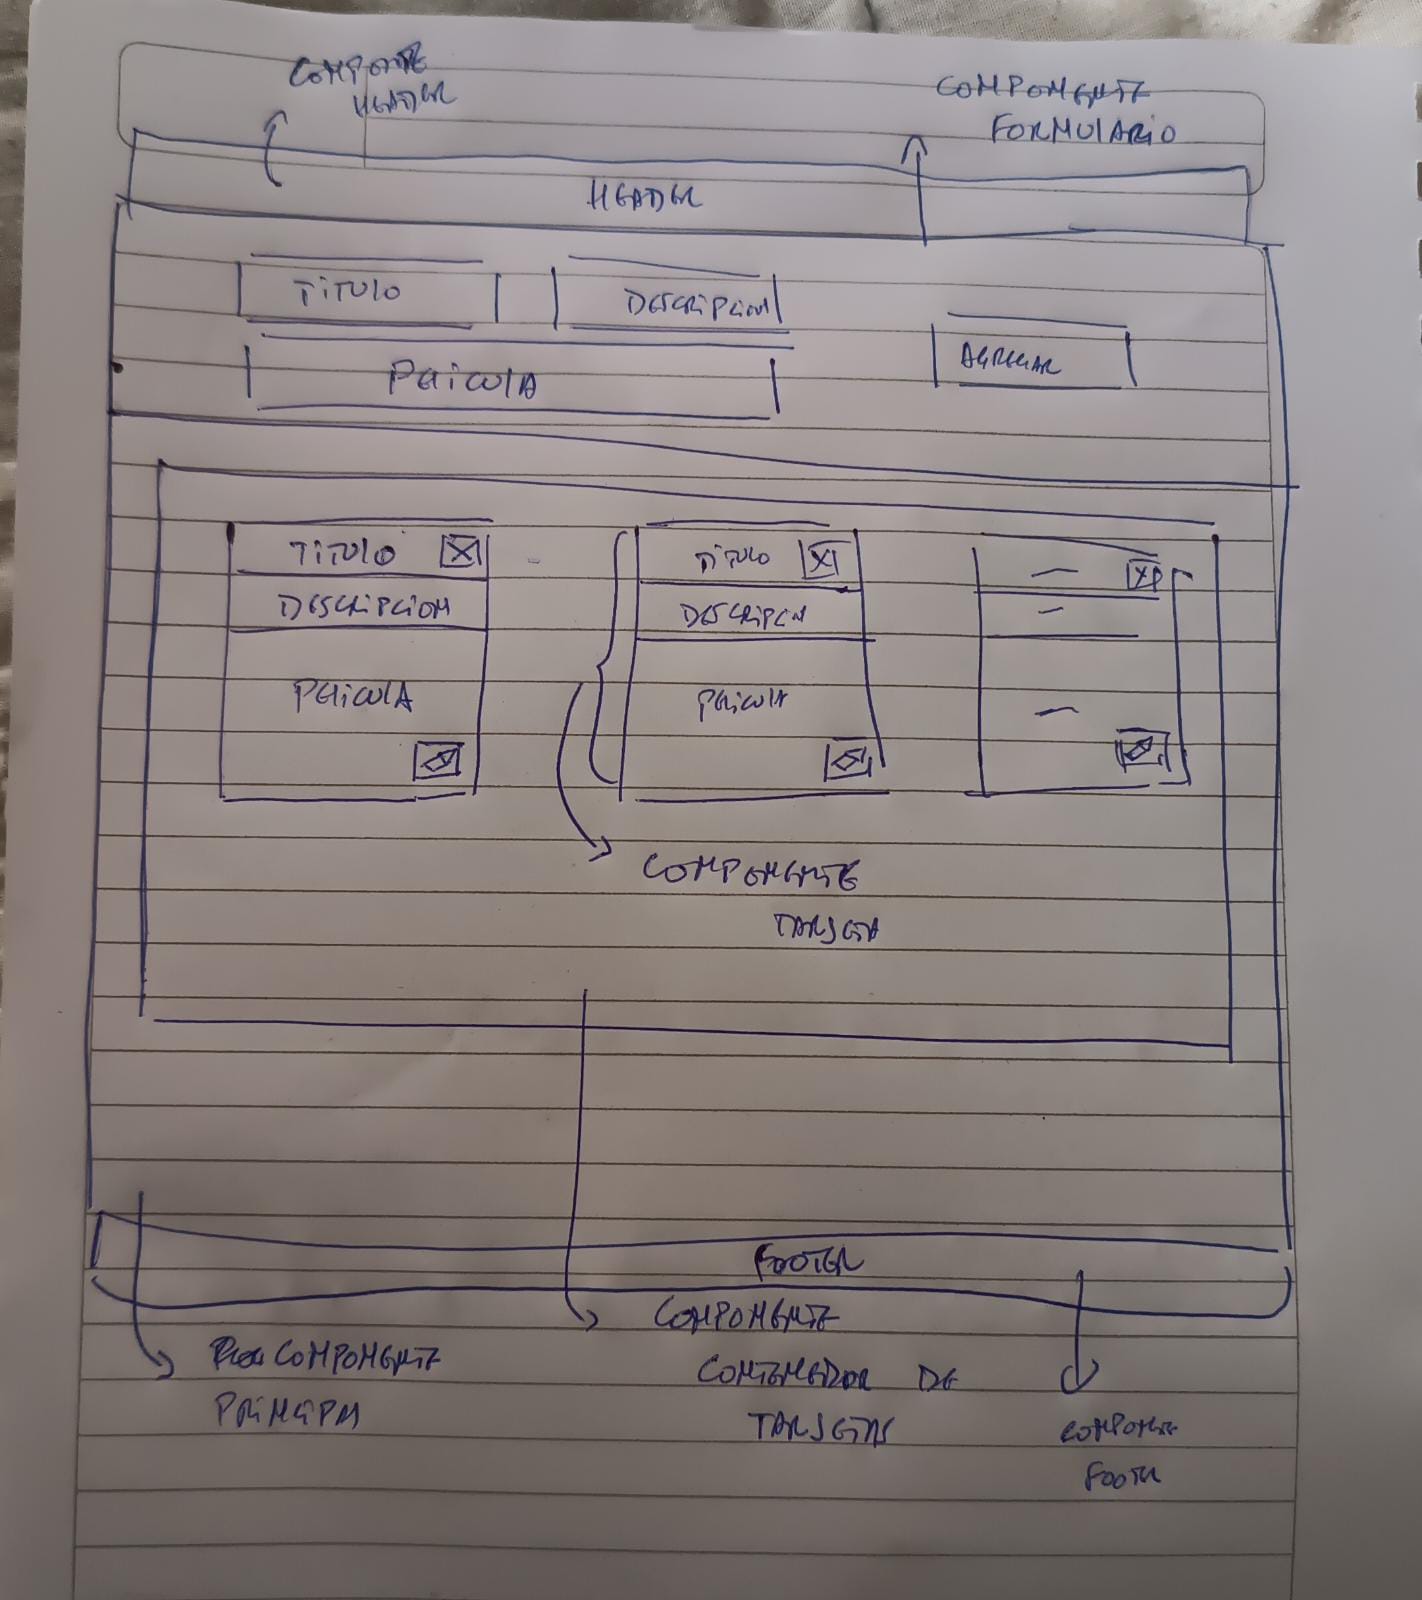 COMPONTE
HEADER
COMPONENTE
FORMULARIO
HEADER
TITULO
DESCRIPCION
PELICULA
AGREGAR
TITULO X
DESCRIPCION
PELICULA
TITULO X
DESCRIPCN
PELICULA
X
COMPONENTE
TARJETA
FOOTER
COMPONENTE
PRINCIPAL
COMPONENTE
CONTENEDOR DE
TARJETAS
COMPONTE
FOOTER